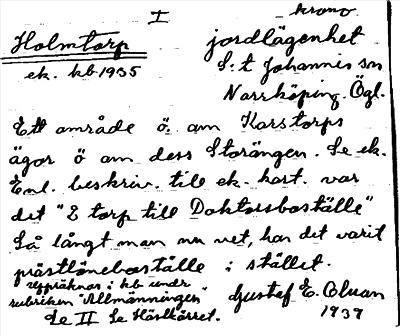 I
krono
Holmtorp
jordlägenhet
ek. kb 1935
S:t Johannis sn
Norrköping. Ögl.
Ett område ö. om Karstorps
ägor ö om dess Storängen. Se ek.
Enl. beskriv. till ek. kart. var
det "2 torp till Doktorsboställe"
Så långt man nu vet, har det varit
prästlöneboställe i stället.
uppräknas i kb undr
rubriken "Allmänningen"
Gustaf E. Oluan
Se II Se Häslkärret.
1937